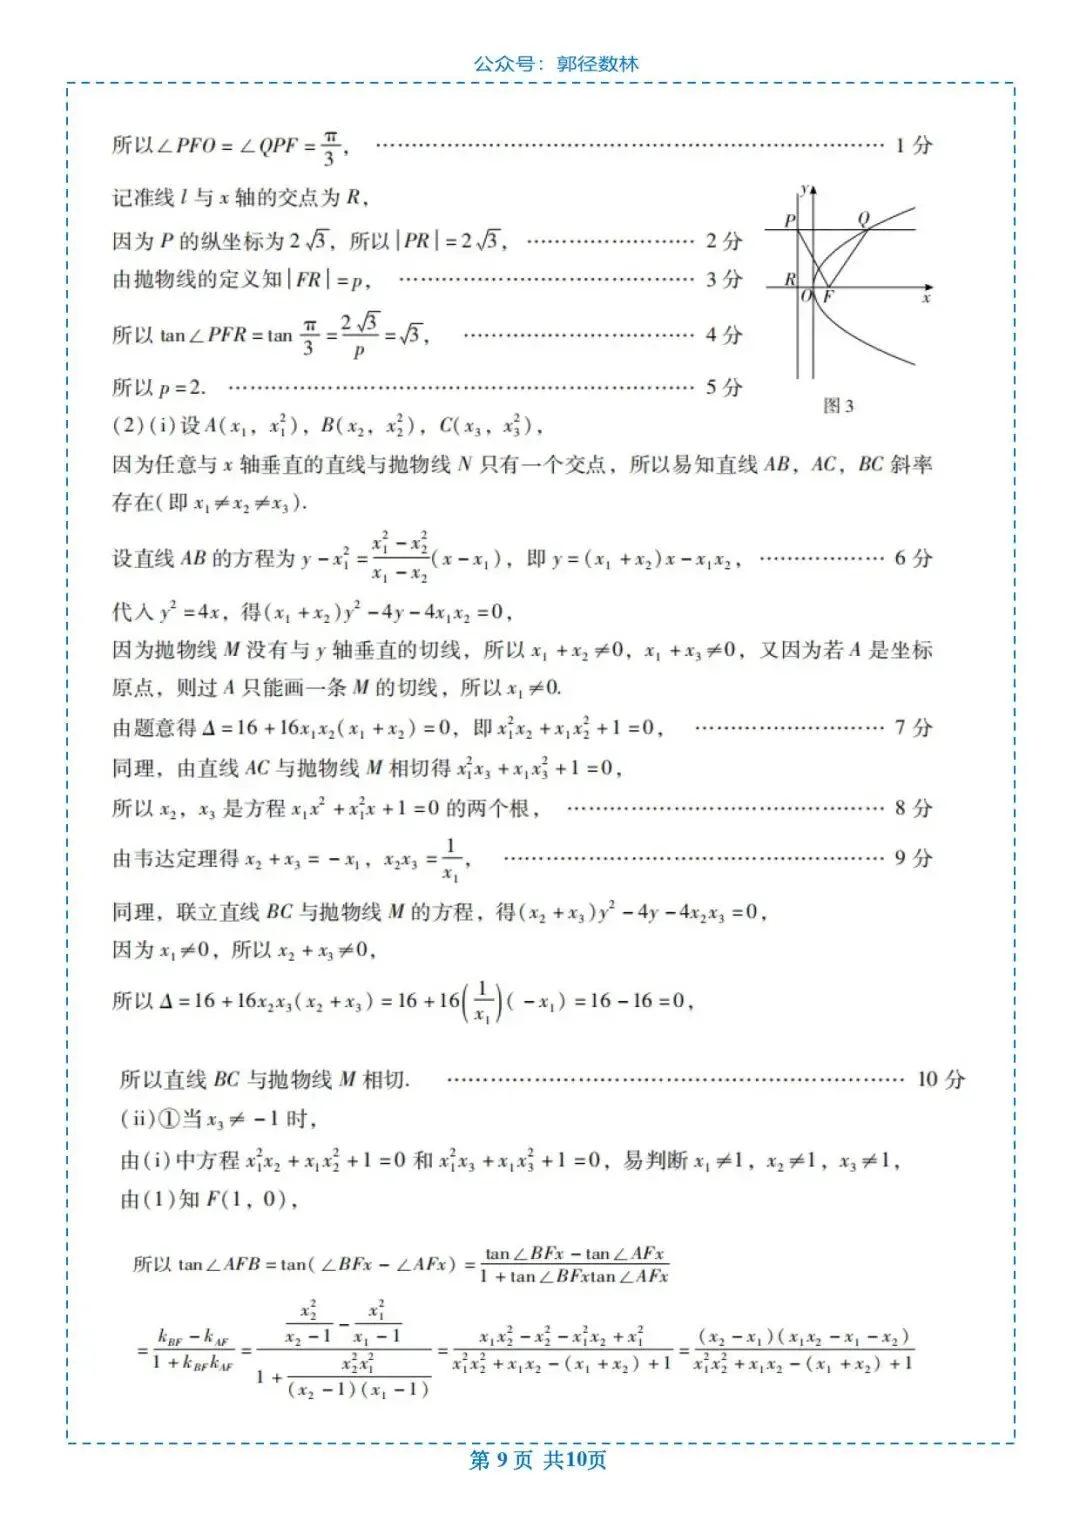 公众号：郭径数林
所以∠PFO=∠QPF=π/3，………………1分
记准线 l 与 x 轴的交点为 R，
因为 P 的纵坐标为 2√3，所以|PR|=2√3，………………2分
由抛物线的定义知|FR|=p，………………3分
所以 tan∠PFR=tan π/3=2√3/p=√3，………………4分
所以 p=2.………………5分
y
P
Q
R
O
F
x
图3
(2)(i)设 A(x₁，x₁²)，B(x₂，x₂²)，C(x₃，x₃²)，
因为任意与 x 轴垂直的直线与抛物线 N 只有一个交点，所以易知直线 AB，AC，BC 斜率
存在(即 x₁≠x₂≠x₃).
设直线 AB 的方程为 y-x₁²=(x₁²-x₂²)/(x₁-x₂)(x-x₁)，即 y=(x₁+x₂)x-x₁x₂，………………6分
代入 y²=4x，得(x₁+x₂)y²-4y-4x₁x₂=0，
因为抛物线 M 没有与 y 轴垂直的切线，所以 x₁+x₂≠0，x₁+x₃≠0，又因为若 A 是坐标
原点，则过 A 只能画一条 M 的切线，所以 x₁≠0.
由题意得 Δ=16+16x₁x₂(x₁+x₂)=0，即 x₁²x₂+x₁x₂²+1=0，………………7分
同理，由直线 AC 与抛物线 M 相切得 x₁²x₃+x₁x₃²+1=0，
所以 x₂，x₃ 是方程 x₁x²+x₁²x+1=0 的两个根，………………8分
由韦达定理得 x₂+x₃=-x₁，x₂x₃=1/x₁，………………9分
同理，联立直线 BC 与抛物线 M 的方程，得(x₂+x₃)y²-4y-4x₂x₃=0，
因为 x₁≠0，所以 x₂+x₃≠0，
所以 Δ=16+16x₂x₃(x₂+x₃)=16+16(1/x₁)(-x₁)=16-16=0，
所以直线 BC 与抛物线 M 相切.………………10分
(ii)①当 x₃≠-1 时，
由(i)中方程 x₁²x₂+x₁x₂²+1=0 和 x₁²x₃+x₁x₃²+1=0，易判断 x₁≠1，x₂≠1，x₃≠1，
由(1)知 F(1，0)，
所以 tan∠AFB=tan(∠BFx-∠AFx)=(tan∠BFx-tan∠AFx)/(1+tan∠BFxtan∠AFx)
=(k_BF-k_AF)/(1+k_BFk_AF)=(x₂²/(x₂-1)-x₁²/(x₁-1))/(1+x₂²x₁²/((x₂-1)(x₁-1)))=(x₁x₂²-x₂²-x₁²x₂+x₁²)/(x₁²x₂²+x₁x₂-(x₁+x₂)+1)=((x₂-x₁)(x₁x₂-x₁-x₂))/(x₁²x₂²+x₁x₂-(x₁+x₂)+1)
第 9 页 共10页